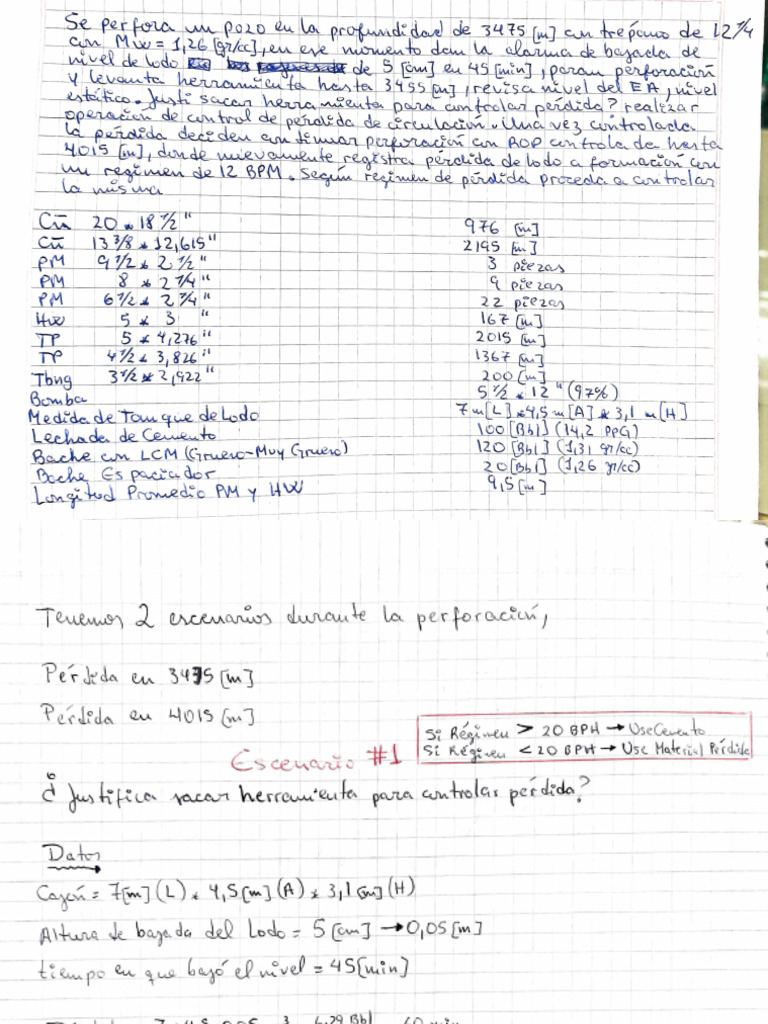 Se perfora un pozo en la profundidad de 3475 [m] con trépano de 12 1/4
con Mw = 1,26 [gr/cc], en ese momento dan la alarma de bajada de
nivel de lodo de 5 [cm] en 45 [min], paran perforación
y levanta herramienta hasta 3455 [m], revisa nivel del EA, nivel
estático. Justi sacar herramienta para controlar pérdida? realizar
operación de control de pérdida de circulación. Una vez controlada
la pérdida deciden continuar perforación con ROP controlada hasta
4015 [m], donde nuevamente registra pérdida de lodo a formación con
un regimen de 12 BPM. Según regimen de pérdida proceda a controlar
la misma
Cñ 20 * 18 1/2" 976 [m]
Cñ 13 3/8 * 12,615" 2195 [m]
PM 9 1/2 * 2 1/2" 3 piezas
PM 8 * 2 3/4" 9 piezas
PM 6 1/2 * 2 3/4" 22 piezas
HW 5 * 3" 167 [m]
TP 5 * 4,276" 2015 [m]
TP 4 1/2 * 3,826" 1367 [m]
Tbng 3 1/2 * 2,922" 200 [m]
Bomba 5 1/2 * 12" (97%)
Medida de Tanque de Lodo 7 m[L] * 4,5 m[A] * 3,1 m[H]
Lechada de Cemento 100 [Bbl] (14,2 PPG)
Bache con LCM (Grueso-Muy Grueso) 120 [Bbl] (1,31 gr/cc)
Bache Espaciador 20 [Bbl] (1,26 gr/cc)
Longitud Promedio PM y HW 9,5 [m]
Tenemos 2 escenarios durante la perforación,
Pérdida en 3475 [m]
Pérdida en 4015 [m]
Si Régimen > 20 BPH → Use Cemento
Si Régimen < 20 BPH → Use Material Pérdida
Escenario #1
¿Justifica sacar herramienta para controlar pérdida?
Datos
Cajón = 7[m](L) * 4,5[m](A) * 3,1[m](H)
Altura de bajada del Lodo = 5 [cm] → 0,05 [m]
tiempo en que bajó el nivel = 45 [min]